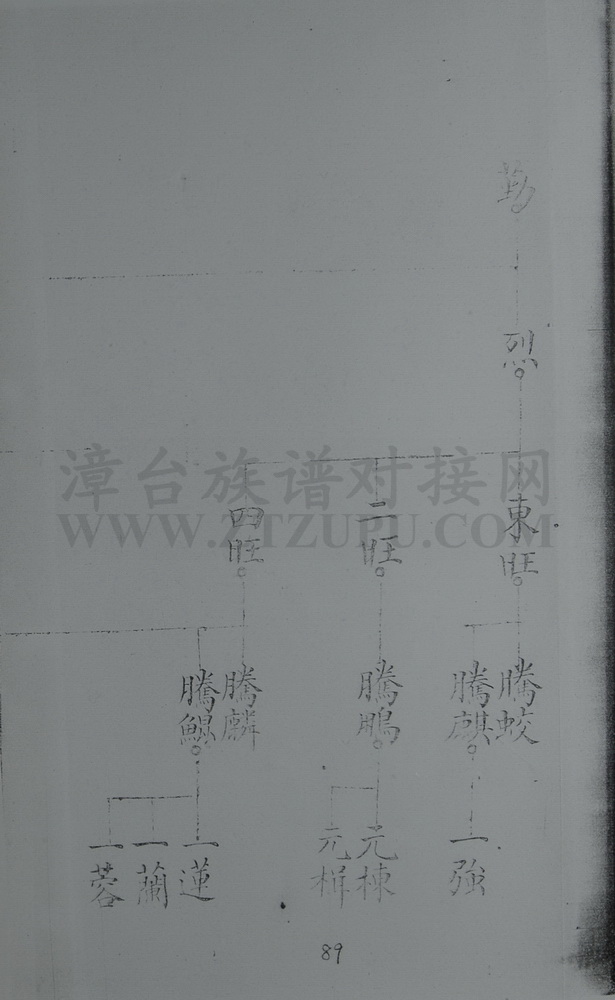 勤
烈
東旺
二旺
四旺
騰蛟
騰麒
騰鵬
騰麟
騰鯤
一強
元棟
元楫
一蓮
一蘭
一蓉
漳台族谱对接网
WWW.ZTZUPU.COM
89